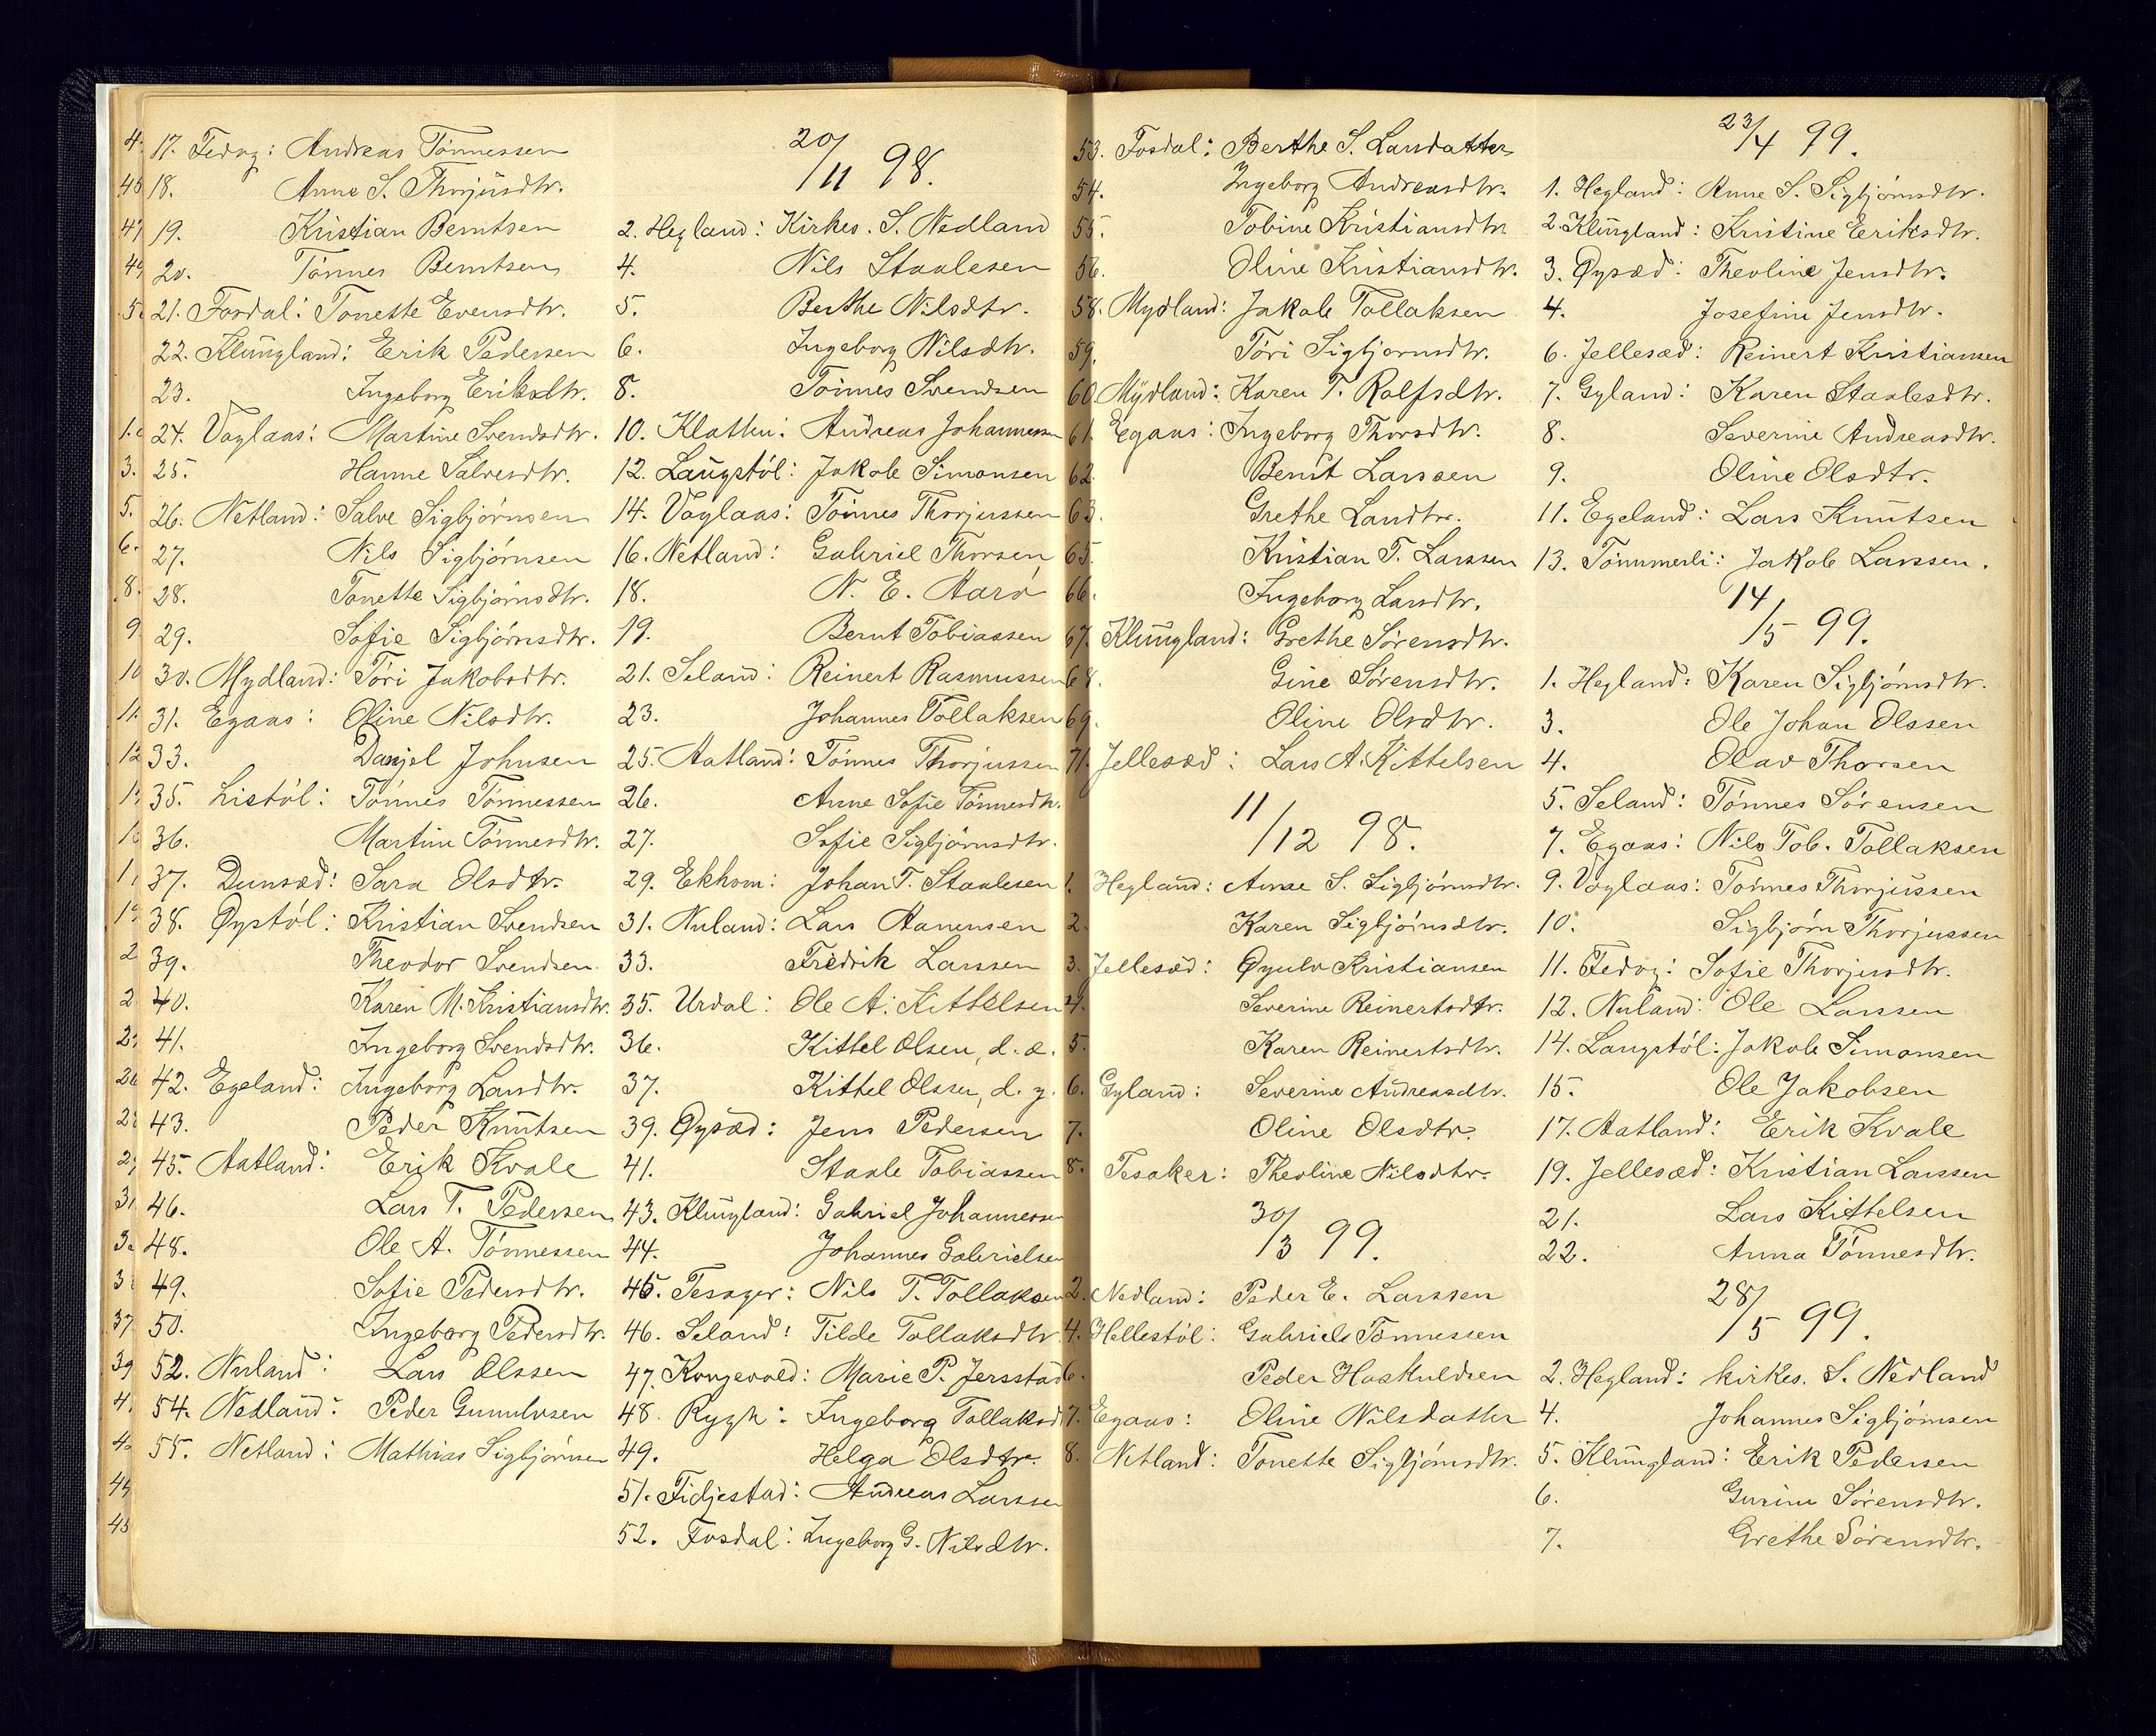 17. Fedog: Andreas Tönnessen
18. Anne S. Thorjusdtr.
19. Kristian Berntsen
20. Tönnes Berntsen
21. Fosdal: Tonette Evensdtr.
22. Klungland: Erik Pedersen
23. Ingeborg Eriksdtr.
24. Voglaas: Martine Svendsdtr.
25. Hanne Salvesdtr.
26. Netland: Salve Sigbjörnsen
27. Nils Sigbjörnsen
28. Tonette Sigbjörnsdtr.
29. Sofie Sigbjörnsdtr.
30. Mydland: Töri Jakobsdtr.
31. Egaas: Oline Nilsdtr.
33. Danjel Johnsen
35. Listöl: Tönnes Tönnessen
36. Martine Tönnesdtr.
37. Dunsæd: Sara Olsdtr.
38. Øystöl: Kristian Svendsen
39. Theodor Svendsen
40. Karen M. Kristiansdtr.
41. Ingeborg Svendsdtr.
42. Egeland: Ingeborg Larsdtr.
43. Peder Knutsen
45. Aatland: Erik Kvale
46. Lars T. Pedersen
48. Ole A. Tönnessen
49. Sofie Pedersdtr.
50. Ingeborg Pedersdtr.
52. Nuland: Lars Olssen
54. Nedland: Peder Gunulvsen
55. Netland: Mathias Sigbjörnsen
20/11 98.
2. Hegland: Kirkes. S. Nedland
4. Nils Staalesen
5. Berthe Nilsdtr.
6. Ingeborg Nilsdtr.
8. Tönnes Svendsen
10. Klatten: Andreas Johannessen
12. Langstöl: Jakob Simonsen
14. Voglaas: Tönnes Thorjussen
16. Netland: Gabriel Thorsen
18. N. E. Aarö
19. Bernt Tobiassen
21. Seland: Reinert Rasmussen
23. Johannes Tollaksen
25. Aatland: Tönnes Thorjussen
26. Anne Sofie Tönnesdtr.
27. Sofie Sigbjörnsdtr.
29. Ekhom: Johan T. Staalesen
31. Nuland: Lars Hanensen
33. Fredrik Larssen
35. Urdal: Ole A. Kittelsen
36. Kittel Olsen, d. æ.
37. Kittel Olssen, d. y.
39. Øysæd: Jens Pedersen
41. Staale Tobiassen
43. Klungland: Gabriel Johannessen
44. Johannes Gabrielsen
45. Tesager: Nils T. Tollaksen
46. Seland: Tilde Tollaksdtr.
47. Kongevold: Marie P. Jersstad
48. Rygh: Ingeborg Tollaksd
49. Helga Olsdtr.
51. Fidjestad: Andreas Larssen
52. Fosdal: Ingeborg G. Nilsdtr.
53. Fosdal: Berthe S. Larsdatter
54. Ingeborg Andreasdtr.
55. Tobine Kristiansdtr.
56. Oline Kristiansdtr.
58. Mydland: Jakob Tollaksen
59. Töri Sigbjornsdtr.
60. Mydland: Karen T. Rolfsdtr.
61. Egaas: Ingeborg Thorsdtr.
62. Bernt Larssen
63. Grethe Larsdtr.
65. Kristian T. Larssen
66. Ingeborg Larsdtr.
67. Klungland: Grethe Sörensdtr.
68. Gine Sörensdtr.
69. Oline Olsdtr.
71. Jellesæd: Lars A. Kittelsen
11/12 98.
1. Hegland: Anne S. Sigbjörnsdtr.
2. Karen Sigbjörnsdtr.
3. Jellesæd: Øyulv Kristiansen
4. Severine Reinertsdtr.
5. Karen Reinertsdtr.
6. Gyland: Severine Andreasdtr.
7. Oline Olsdtr.
8. Tesaker: Theoline Nilsdtr.
30/3 99.
2. Nedland: Peder E. Larssen
4. Hellestöl: Gabriels Tönnessen
6. Peder Haskuldsen
7. Egaas: Oline Nilsdatter
8. Netland: Tonette Sigbjörnsdtr.
23/4 99.
1. Hegland: Anne S. Sigbjörnsdtr.
2. Klungland: Kristine Eriksdtr.
3. Øysæd: Theoline Jensdtr.
4. Josefine Jensdtr.
6. Jellesæd: Reinert Kristiansen
7. Gyland: Karen Staalesdtr.
8. Severine Andreasdtr.
9. Oline Olsdtr.
11. Egeland: Lars Knutsen
13. Tömmerli: Jakob Larssen.
14/5 99.
1. Hegland: Karen Sigbjörnsdtr.
3. Ole Johan Olssen
4. Olav Thorsen
5. Seland: Tönnes Sörensen
7. Egaas: Nils Tob. Tollaksen
9. Voglaas: Tönnes Thorjussen
10. Sigbjörn Thorjussen
11. Fedog: Sofie Thorjusdtr.
12. Nuland: Ole Larssen
14. Langstöl: Jakob Simonsen
15. Ole Jakobsen
17. Aatland: Erik Kvale
19. Jellesæd: Kristian Larssen
21. Lars Kittelsen
22. Anna Tönnesdtr.
28/5 99.
2. Hegland: kirkes. S. Nedland
4. Johannes Sigbjörnsen
5. Klungland: Erik Pedersen
6. Gurine Sörensdtr.
7. Grethe Sörensdtr.